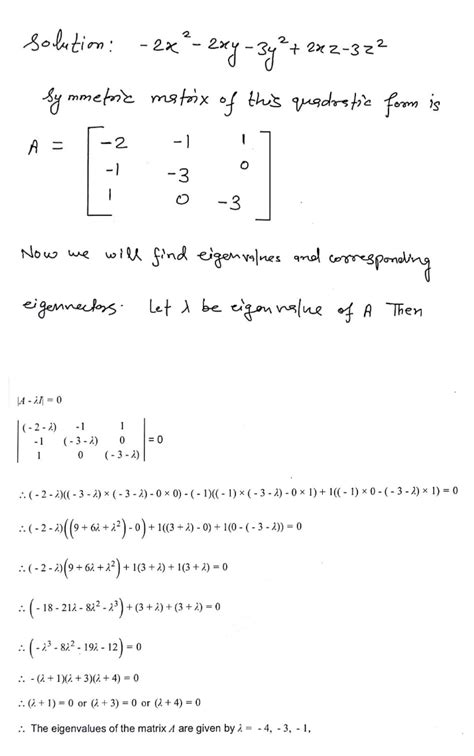 Solution: -2x² - 2xy - 3y² + 2xz - 3z²
Symmetric matrix of this quadratic form is
A = [ -2 -1 1
-1 -3 0
1 0 -3 ]
Now we will find eigenvalues and corresponding
eigenvectors. Let λ be eigenvalue of A Then
|A - λI| = 0
|(-2-λ) -1 1|
|-1 (-3-λ) 0| = 0
|1 0 (-3-λ)|
∴ (-2-λ)((-3-λ) × (-3-λ) - 0 × 0) - (-1)((-1) × (-3-λ) - 0 × 1) + 1((-1) × 0 - (-3-λ) × 1) = 0
∴ (-2-λ)((9 + 6λ + λ²) - 0) + 1((3+λ) - 0) + 1(0 - (-3-λ)) = 0
∴ (-2-λ)(9 + 6λ + λ²) + 1(3+λ) + 1(3+λ) = 0
∴ (-18 - 21λ - 8λ² - λ³) + (3+λ) + (3+λ) = 0
∴ (-λ³ - 8λ² - 19λ - 12) = 0
∴ -(λ+1)(λ+3)(λ+4) = 0
∴ (λ+1) = 0 or (λ+3) = 0 or (λ+4) = 0
∴ The eigenvalues of the matrix A are given by λ = -4, -3, -1,